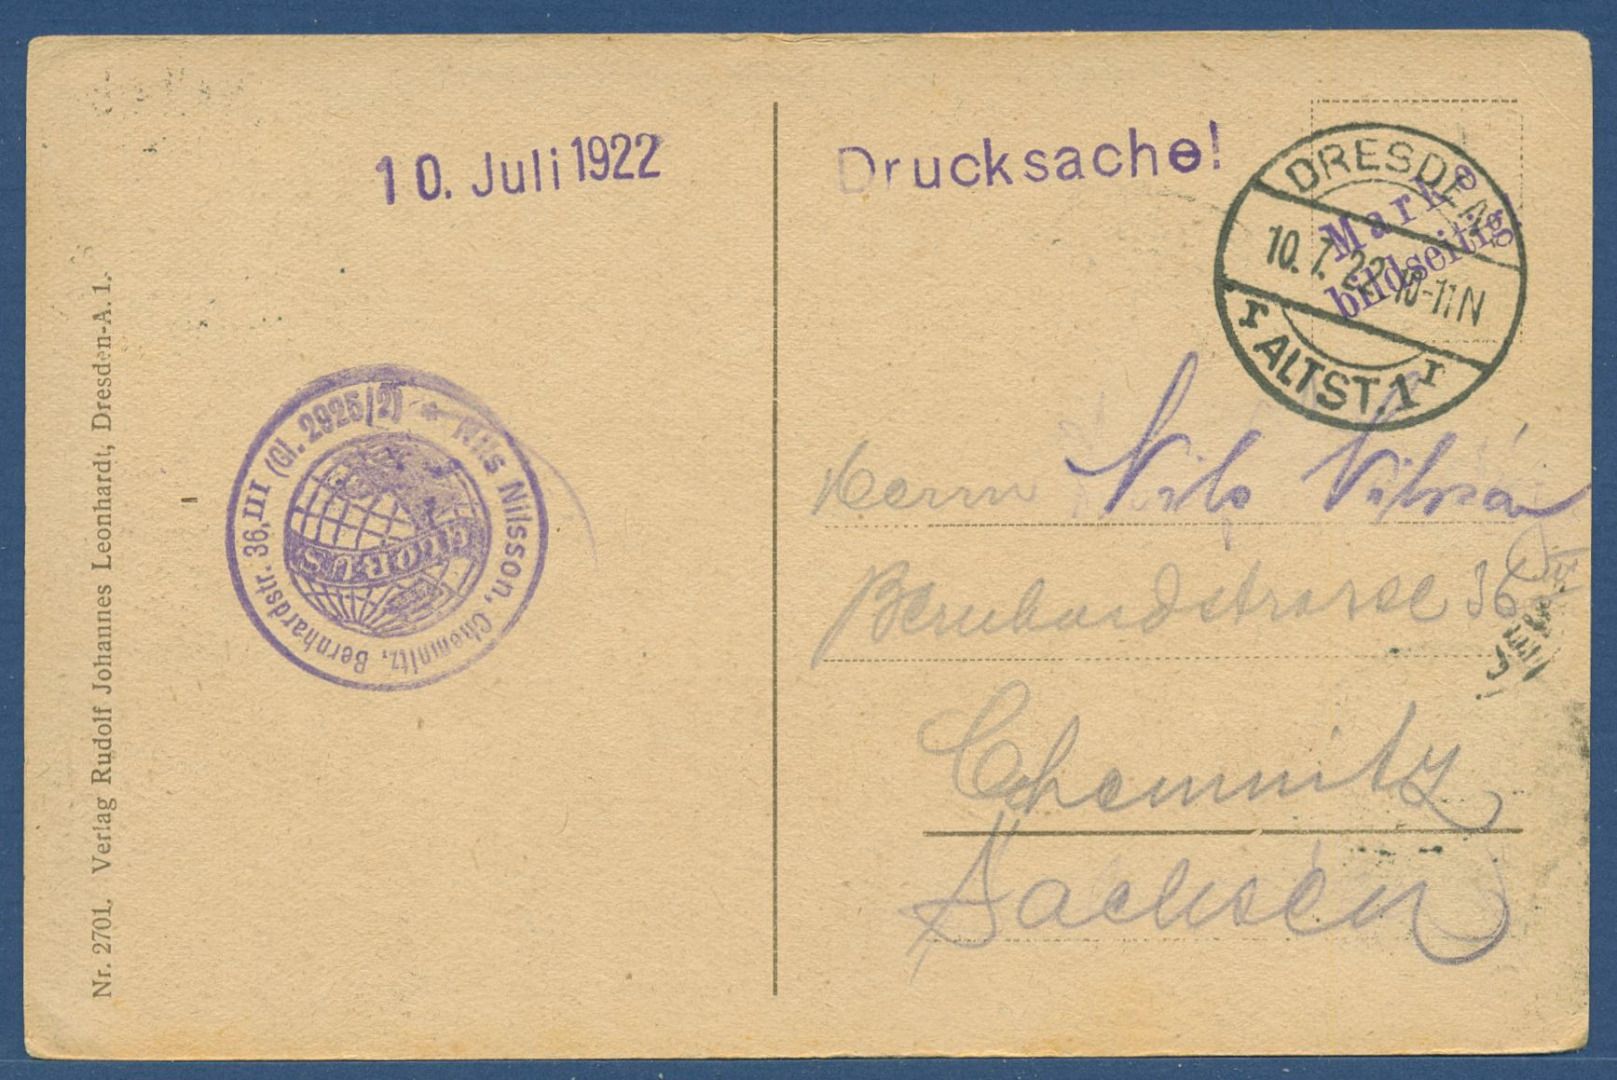 10. Juli 1922
Drucksache!
DRESDEN
10.7.22 10-11N
r ALTST. 1 r
Marke
bildseitig
Nr. 2701. Verlag Rudolf Johannes Leonhardt, Dresden-A. 1.
* Nils Nilsson, Chemnitz, Bernhardstr. 36, III (Gl. 2925/2)
GLOBUS
Herrn Nils Nilsson
Bernhardstrasse 36 III
Chemnitz
Sachsen